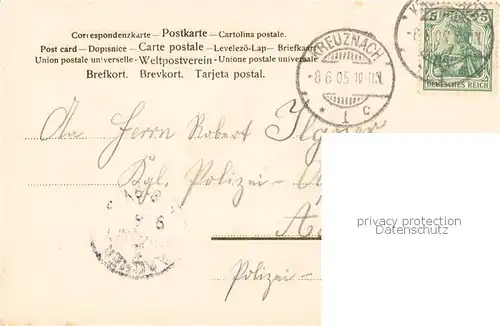 Correspondenzkarte – Postkarte – Cartolina postale.
Post card – Dopisnice – Carte postale – Levelező-Lap – Briefkaart
Union postale universelle – Weltpostverein – Unione postale universale
Brefkort. Brevkort. Tarjeta postal.
KREUZNACH
8 6 05 10-11V.
* 1 c
5 5
DEUTSCHES REICH
An Herrn Robert Ilgner
Kgl. Polizei-
privacy protection
Datenschutz
Polizei-